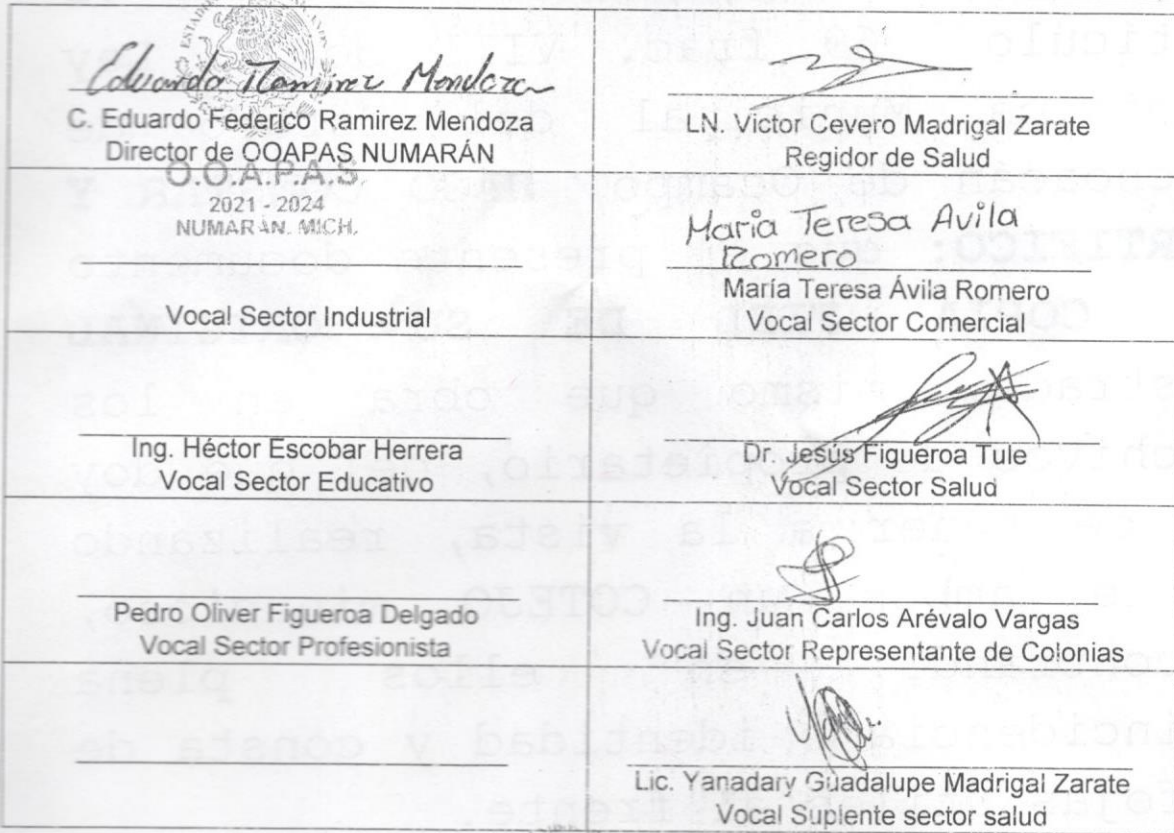 Eduardo Ramirez Mendoza
C. Eduardo Federico Ramirez Mendoza
Director de OOAPAS NUMARÁN
O.O.A.P.A.S.
2021 - 2024
NUMARÁN. MICH.
LN. Victor Cevero Madrigal Zarate
Regidor de Salud
Vocal Sector Industrial
Maria Teresa Avila
Romero
María Teresa Ávila Romero
Vocal Sector Comercial
Ing. Héctor Escobar Herrera
Vocal Sector Educativo
Dr. Jesús Figueroa Tule
Vocal Sector Salud
Pedro Oliver Figueroa Delgado
Vocal Sector Profesionista
Ing. Juan Carlos Arévalo Vargas
Vocal Sector Representante de Colonias
Lic. Yanadary Guadalupe Madrigal Zarate
Vocal Suplente sector salud